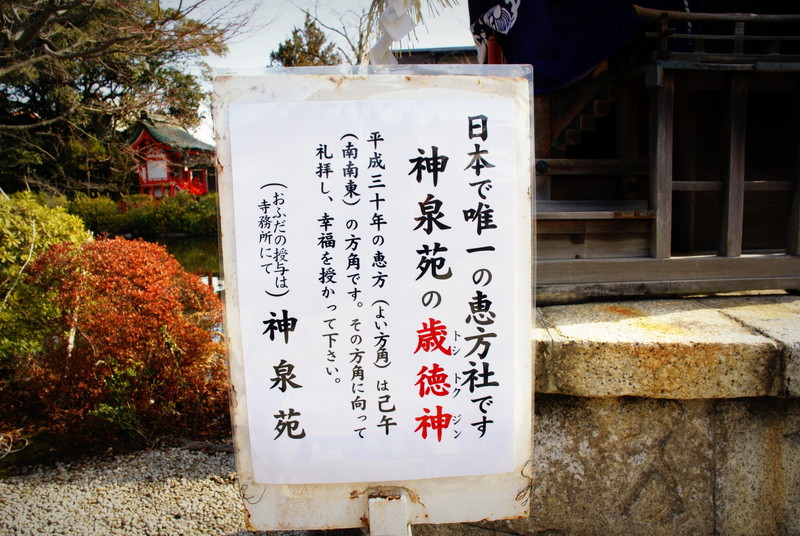 日本で唯一の恵方社です
神泉苑の歳徳神
トシトクジン
平成三十年の恵方(よい方角)は己午
(南南東)の方角です。その方角に向って
礼拝し、幸福を授かって下さい。
(おふだの授与は
寺務所にて)
神泉苑